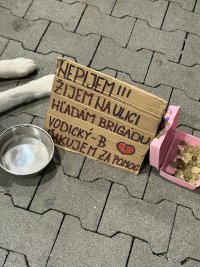 NEPIJEM !!!
ŽIJEM NA ULICI
HĽADÁM BRIGÁDU
VODICKÝ-B
ĎAKUJEM ZA POMOC